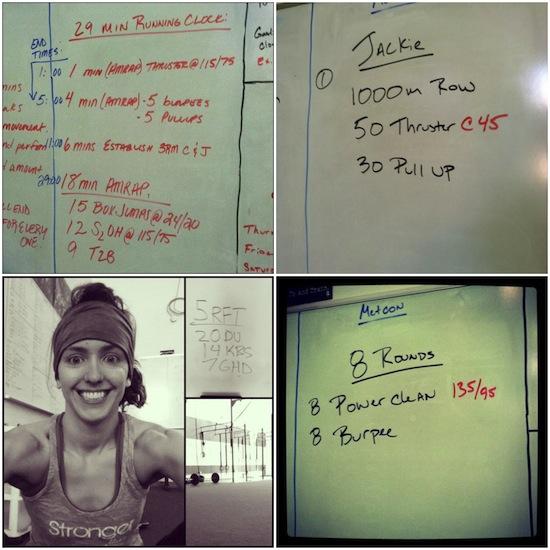 29 MIN RUNNING CLOCK:
END
TIMES:
1:00 1 MIN (AMRAP) THRUSTER @ 115/75
5:00 4 MIN (AMRAP) - 5 BURPEES
- 5 PULLUPS
11:00 6 MINS ESTABLISH 3RM C & J
29:00 18 MIN AMRAP
15 BOX JUMPS @ 24/20
12 S2OH @ 115/75
9 T2B
mins
movement.
amount
END
FOR EVERY
ONE
Ex.
Thur
Frid
Satur
JACKie
① 1000m Row
50 Thruster @ 45
30 Pull UP
5 RFT
20 DU
14 KBS
7 GHD
Stronger
Metcon
8 Rounds
8 Power clean 135/95
8 Burpee